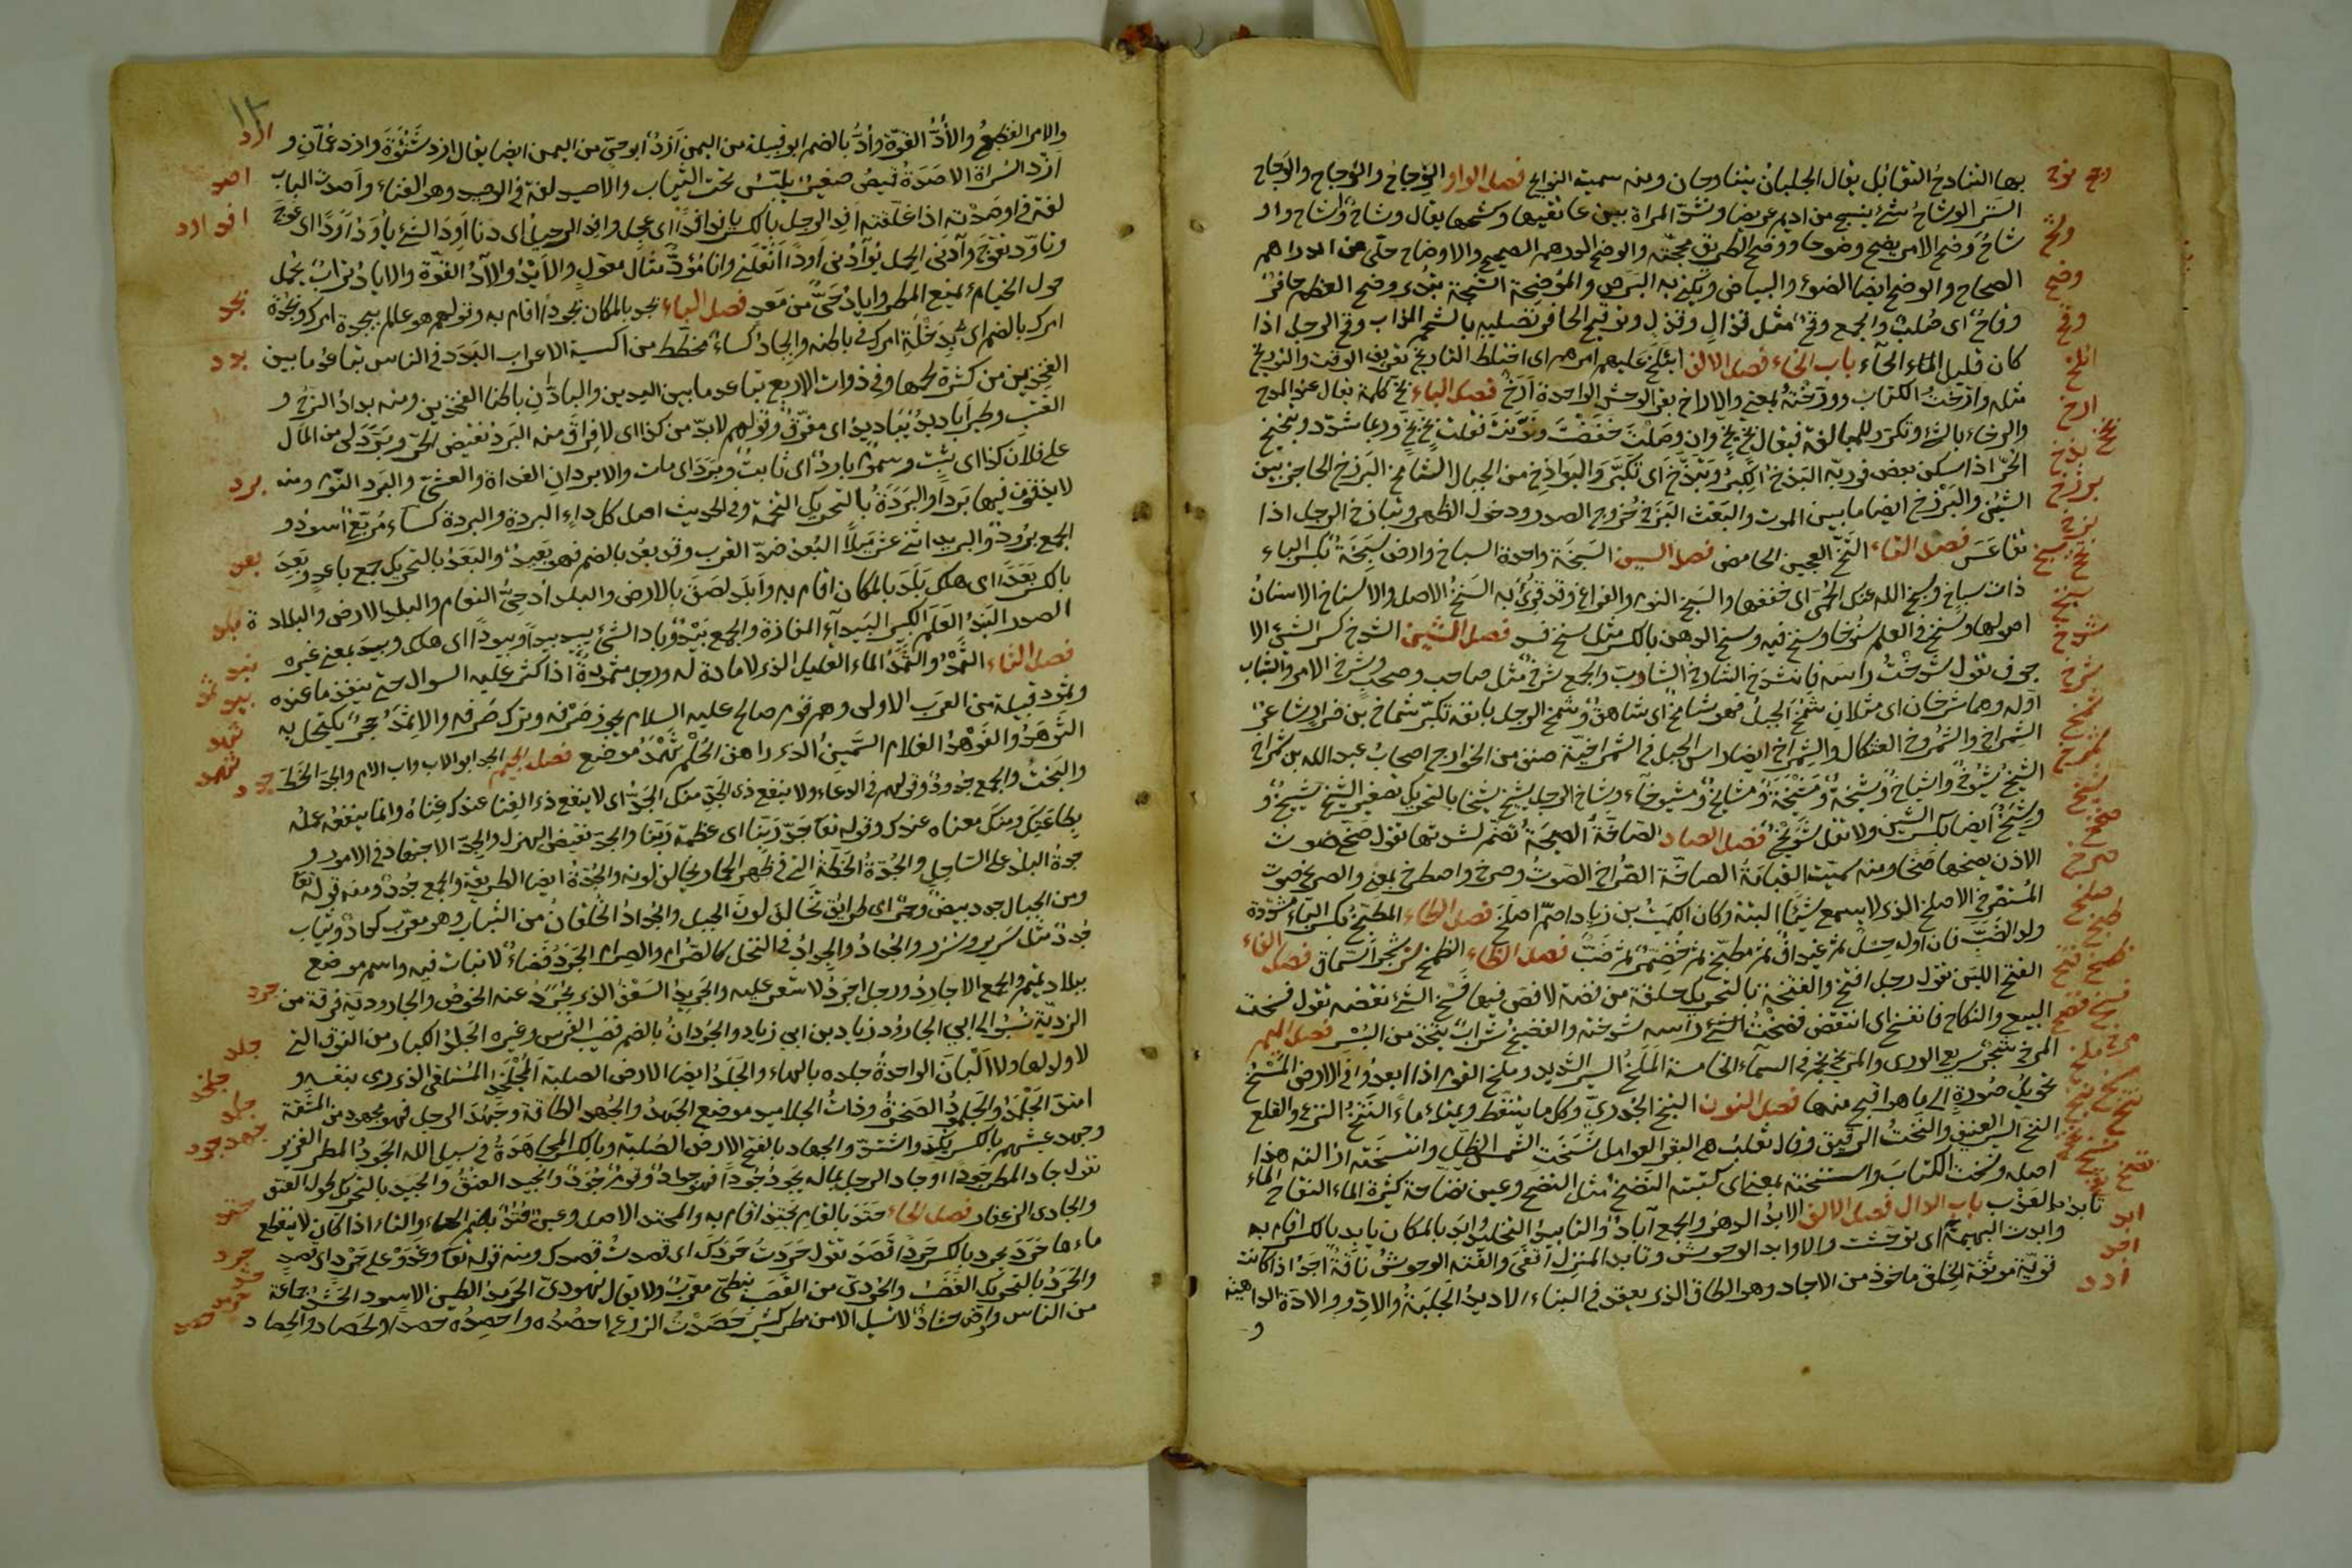 بها التناوح التقابل يقال الجبلان يتناوحان ومنه سميت النوايح فصل الواو الوجاح والوجاح والوجاح
الستر الوشاح شئ ينسج من اديم عريضا وتشده المراة بين عاتقيها وكشحها يقال وشاح واشاح
وضح الامر يضح وضوحا ووضح الطريق محجته والوضح الدرهم الصحيح والاوضاح حلى من الدراهم
الصحاح والوضح ايضا الضوء والبياض ويكنى به البرص والموضحة الشجة تبدى وضح العظم حافر
وقاح اى صلب والجمع وقح مثل قذال وقذل وتوقيح الحافر تصليبه بالشحم المذاب وقح الرجل اذا
كان قليل الحياء باب الخاء فصل الالف ائتلخ عليهم امرهم اى اختلط التاريخ تعريف الوقت والتوريخ
مثله وارخت الكتاب وورخته بمعنى والاراخ بقر الوحش الواحدة ارخ فصل الباء بخ كلمة تقال عند المدح
والرضاء بالشئ وتكرر للمبالغة فيقال بخ بخ وان وصلت خفضت ونونت فقلت بخ بخ وربما شدد وبخبخ
الحر اذا سكن بعض فورته البذخ الكبر وتبذخ اى تكبر والبواذخ من الجبال الشامخ البرزخ الحاجز بين
الشيئين والبرزخ ايضا ما بين الموت والبعث البزخ خروج الصدر ودخول الظهر وتبازخ الرجل اذا
تقاعس فصل التاء التخ العجين الحامض فصل السين السبخة واحدة السباخ وارض سبخة بكسر الباء
ذات سباخ وسبخ الله عنك الحمى اى خففها والسبخ النوم والفراغ وقد قرئ به السنخ الاصل والاسناخ الاسنان
اصولها وسنخ فى العلم سنوخا رسخ فيه وسنخ الدهن بالكسر مثل زنخ فسد فصل الشين الشدخ كسر الشئ الا
جوف تقول شدخت راسه فانشدخ الشارخ الشاب والجمع شرخ مثل صاحب وصحب وشرخ الامر والشباب
اوله وهما شرخان اى مثلان شمخ الجبل فهو شامخ اى شاهق وشمخ الرجل بانفه تكبر شماخ بن ضرار شاعر
الشمراخ والشمروخ العثكال والشمراخ ايضا راس الجبل فى الشمراخية صنف من الخوارج اصحاب عبد الله بن شمراخ
الشيخ شيوخ واشياخ وشيخة ومشيخة ومشايخ ومشيوخاء وشاخ الرجل يشيخ شيخا بالتحريك تصغير الشيخ شييخ و
وشييخ ايضا بكسر الشين ولا تقل شويخ فصل الصاد الصاخة الصيحة تصم لشدتها تقول صخ الصوت
الاذن يصخها صخا ومنه سميت القيامة الصاخة الصراخ الصوت وصرخ واصطرخ بمعنى والصريخ صوت
المستصرخ الاصلخ الذى لا يسمع شيئا البتة وكان الكميت بن زياد اصم اصلخ فصل الطاء المطبخ بكسر الباء مشددة
ولد الضب فان اوله حسل ثم غيداق ثم مطبخ ثم خضرم ثم ضب فصل الظاء الظمخ شجر السماق فصل الفاء
الفتخ اللين تقول رجل افتخ والفتخة بالتحريك حلقة من فضة لا فص فيها فسخ الشئ نقضه تقول فسخت
البيع والنكاح فانفسخ اى انتقض فضخت الشئ راسه شدخته والفضيخ شراب يتخذ من البسر فصل الميم
المرخ شجر سريع الورى والمريخ نجم فى السماء الخامسة الملخ السير الشديد وملخ القوم اذا ابعدوا فى الارض المسخ
تحويل صورة الى ما هو اقبح منها فصل النون النبخ الجدرى وكل ما يتنفط ويمتلئ ماء النتخ النزع والقلع
النخ السير العنيف والنخة الرقيق وقال ثعلب هى البقر العوامل نسخت الشمس الظل وانتسخته ازالته هذا
اصله ونسخت الكتاب واستنسخته بمعنى اى كتبته النضخ مثل النضح وعين نضاخة كثيرة الماء النقاخ الماء
العذب باب الدال فصل الالف الابد الدهر والجمع آباد والتابيد التخليد وابد بالمكان يابد بالكسر اقام به
وابدت البهيمة اى توحشت والاوابد الوحوش وتابد المنزل اقفر والفته الوحوش ناقة اجد اذا كانت
قوية موثقة الخلق ماخوذ من الاجاد وهو الطاق الذى يعقد فى البناء الاديد الجلبة والاد والادة الداهية
والامر الفظيع والاد القوة واد بالضم ابو قبيلة من اليمن ازد ابو حى من اليمن ايضا يقال ازد شنوءة وازد عمان و
ازد السراة الاصدة قميص صغير يلبس تحت الثياب والاصيد لغة فى الوصيد وهو الفناء واصدت الباب
لغة فى اوصدته اذا اغلقته افد الرجل بالكسر يافد افدا اى عجل وافد الرحيل اى دنا اود الشئ ياود اودا اى اعوج
وتاود تعوج وآدنى الحمل يؤودنى اودا اثقلنى وانا مؤود مثال مقول والايد والآد القوة والاياد تراب يجعل
حول الخيام يمنع المطر واياد حى من معد فصل الباء بجد بالمكان بجودا اقام به وقولهم هو عالم ببجدة امرك وبجدة
امرك بالضم اى بدخلة امرك وباطنه والبجاد كساء مخطط من اكسية الاعراب البدد فى الناس تباعد ما بين
الفخذين من كثرة لحمها وفى ذوات الاربع تباعد ما بين اليدين والبادان باطنا الفخذين ومنه بداد السرج و
القتب وطير اباديد يباديد اى مفرق وقولهم لا بد من كذا اى لا فراق منه البرد نقيض الحر وبرد لى من المال
على فلان كذا اى ثبت وسموم بارد اى ثابت وبرد اى مات والابردان الغداة والعشى والبرد النوم ومنه
لا يذوقون فيها بردا والبردة بالتحريك التخمة وفى الحديث اصل كل داء البردة والبردة كساء مربع اسود و
الجمع برود والبريد اثنى عشر ميلا البعد ضد القرب وقد بعد بالضم فهو بعيد والبعد بالتحريك جمع باعد وبعد
بالكسر بعدا اى هلك بلد بالمكان اقام به وابلد لصق بالارض والبلد ادحى النعام والبلد الارض والبلادة
الصدر البند العلم الكبير البيداء المفازة والجمع بيد وباد الشئ يبيد بيدا وبيودا اى هلك وبيد بمعنى غير
فصل الثاء الثمد والثمد الماء القليل الذى لا مادة له ورجل مثمود اذا كثر عليه السوال حتى ينفد ما عنده
وثمود قبيلة من العرب الاولى وهم قوم صالح عليه السلام يجوز صرفه وترك صرفه والاثمد حجر يكتحل به
الثوهد والفوهد الغلام السمين الذى راهق الحلم ثهمد موضع فصل الجيم الجد ابو الاب واب الام والجد الحظ
والبخت والجمع جدود وقولهم فى الدعاء ولا ينفع ذى الجد منك الجد اى لا ينفع ذى الغنا عندك غناه وانما ينفعه عمله
بطاعتك ومنك معناه عندك وقوله تعا جد ربنا اى عظمة ربنا والجد نقيض الهزل والجد الاجتهاد فى الامور و
جدة البلد على الساحل والجدة الخطة التى فى ظهر الحمار يخالف لونه والجدة ايضا الطريقة والجمع جدد ومنه قوله تعا
ومن الجبال جدد بيض وحمر اى طرائق تخالف لون الجبل والجداد الخلقان من الثياب وهو معرب كداد وثياب
جدد مثل سرير وسرر والجداد والجداد فى النخل كالصرام والصرام الجرد فضاء لا نبات فيه واسم موضع
ببلاد تميم والجمع الاجارد ورجل اجرد لا شعر عليه والجريد السعف الذى يجرد عنه الخوص والجارودية فرقة من
الزيدية نسبوا الى ابى الجارود زياد بن ابى زياد والجردان بالضم قضيب الفرس وغيره الجلد الكبار من النوق التى
لا اولاد لها ولا البان الواحدة جلده بالهاء والجلد ايضا الارض الصلبة المجلخد المستلقى الذى رمى بنفسه و
امتد الجلمد والجلمود الصخرة وذات الجلاميد موضع الجهد والجهد الطاقة وجهد الرجل فهو مجهود من المشقة
وجهد عيشهم بالكسر نكد واشتد والجهاد بالفتح الارض الصلبة وبالكسر المجاهدة فى سبيل الله الجود المطر الغزير
تقول جاد المطر جودا وجاد الرجل بماله يجود جودا فهو جواد وقوم جود والجيد العنق والجيد بالتحريك طول العنق
والجادى الزعفران فصل الحاء حتد بالمقام يحتد اقام به والمحتد الاصل وعين حتد بضم الحاء والتاء اذا كان لا ينقطع
ماءها حرد يحرد بالكسر حردا قصد تقول حردت حردك اى قصدت قصدك ومنه قوله تعا وغدوا على حرد اى قصد
والحرد بالتحريك الغضب والحردى من القصب نبطى معرب ولا يقال هردى الحرمد الطين الاسود الحشد جماعة
من الناس وارض حشاد لا تسيل الا من مطر كثير حصدت الزرع احصده واحصده حصدا والحصاد والحصاد